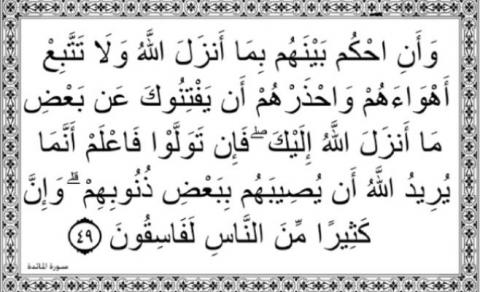 وَأَنِ احْكُم بَيْنَهُم بِمَا أَنزَلَ اللَّهُ وَلَا تَتَّبِعْ
أَهْوَاءَهُمْ وَاحْذَرْهُمْ أَن يَفْتِنُوكَ عَن بَعْضِ
مَا أَنزَلَ اللَّهُ إِلَيْكَ ۖ فَإِن تَوَلَّوْا فَاعْلَمْ أَنَّمَا
يُرِيدُ اللَّهُ أَن يُصِيبَهُم بِبَعْضِ ذُنُوبِهِمْ ۗ وَإِنَّ
كَثِيرًا مِّنَ النَّاسِ لَفَاسِقُونَ ﴿٤٩﴾
سورة المائدة